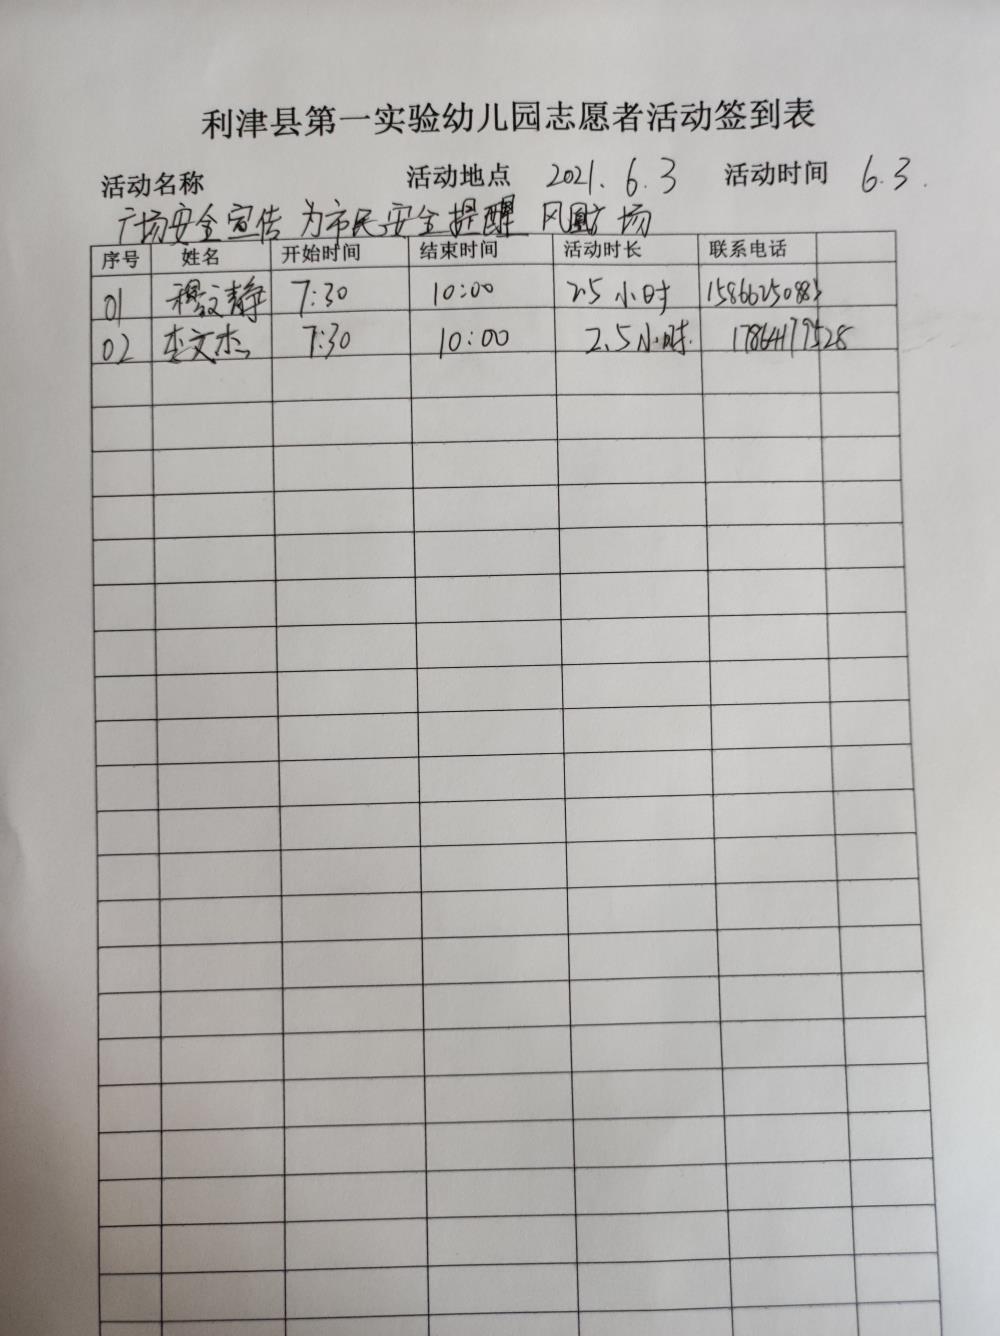 利津县第一实验幼儿园志愿者活动签到表
活动名称 活动地点 2021.6.3 活动时间 6.3.
广场安全宣传 为市民安全提醒 凤凰广场
序号 姓名 开始时间 结束时间 活动时长 联系电话
01 穆文静 7:30 10:00 2.5小时
02 李文杰 7:30 10:00 2.5小时. 17864179528